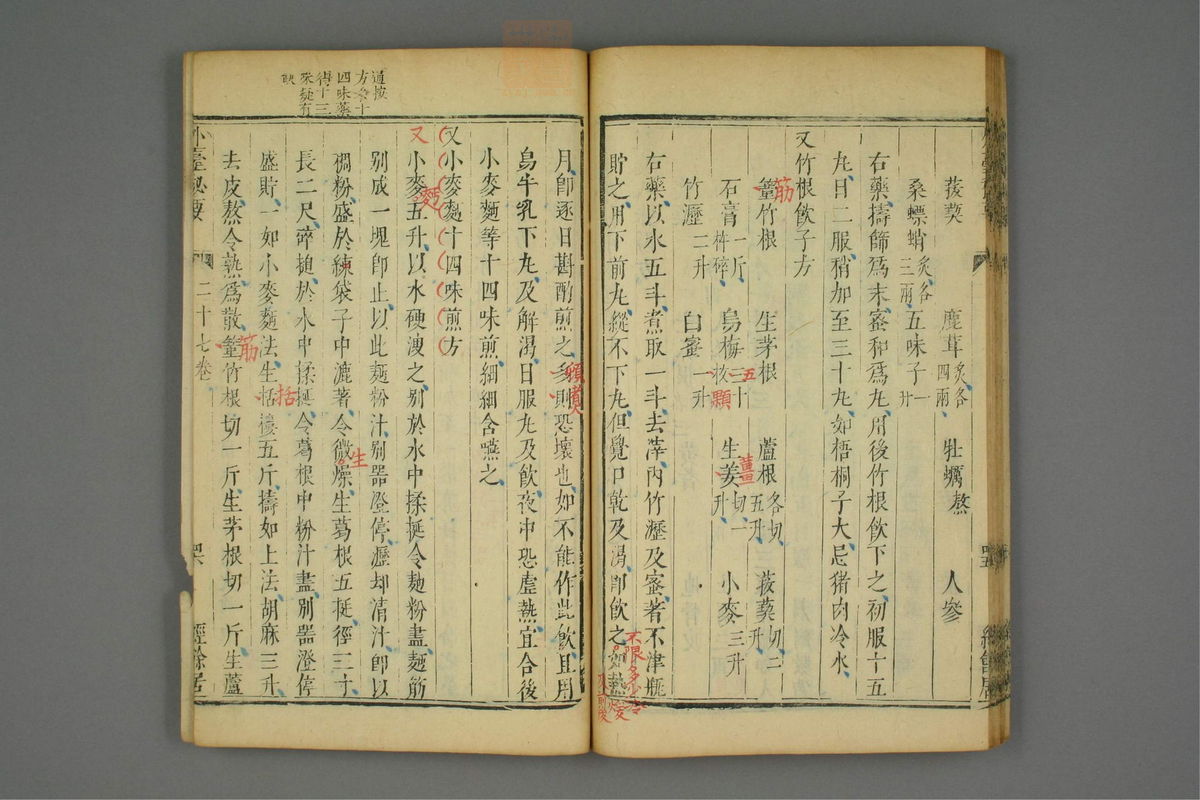 菝葜 鹿茸炙各四兩 牡蠣熬 人參
桑螵蛸炙各三兩 五味子一升
右藥擣篩爲末蜜和爲丸用後竹根飲下之初服十五
丸日二服稍加至三十丸如梧桐子大忌猪肉冷水
又竹根飲子方
篁竹根 生茅根 蘆根各切五升 菝葜切三升
筋
石膏一斤杵碎 烏梅三十枚 生姜切一升 小麥三升
五
顆
薑
竹瀝二升 白蜜一升
右藥以水五斗煮取一斗去滓内竹瀝及蜜著不津瓶
貯之用下前丸縱不下丸但覺口乾及渴即飲之如熱
不限多少冷
月即逐日斟酌煎之多則恐壞也如不能作此飲且用
烏牛乳下丸及解渴日服丸及飲夜中恐虛熱宜合後
小麥麵等十四味煎細細含嚥之
又小麥麵十四味煎方
又小麥五升以水硬溲之别於水中揉挻令麵粉盡麵筋
麪
别成一塊即止以此麵粉汁别器澄停瀝却清汁即以
稠粉盛於練袋子中漉著令微燥生葛根五挺徑三寸
生
長二尺碎搥於水中揉挻令葛根中粉汁盡别器澄停
盛貯一如小麥麵法生括蔞五斤擣如上法胡麻三升
括
去皮熬令熟爲散篁竹根切一斤生茅根切一斤生蘆
筋
外臺秘要 二十七卷 經餘居
道按
方系十
四味藥
得十三
味疑有
缺